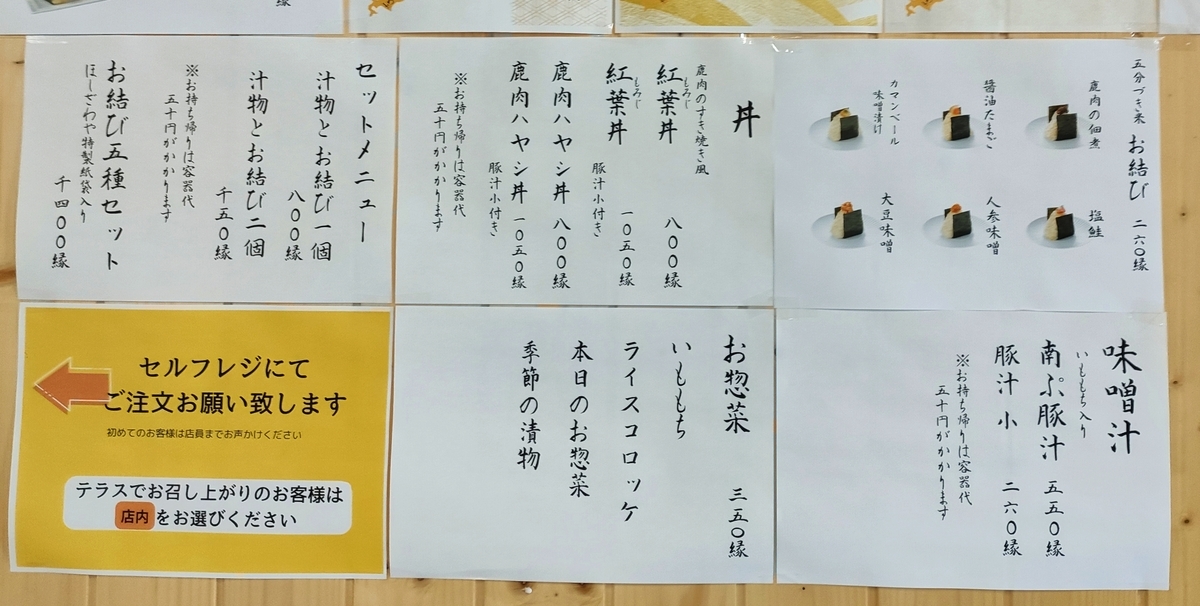 縁
五分づき米 お結び 二六〇縁
鹿肉の佃煮
醤油たまご
カマンベール
味噌漬け
塩鮭
人参味噌
大豆味噌
丼
鹿肉のすき焼き風
紅葉丼 八〇〇縁
もみじ
紅葉丼 一〇五〇縁
もみじ
豚汁小付き
鹿肉ハヤシ丼 八〇〇縁
鹿肉ハヤシ丼 一〇五〇縁
豚汁小付き
※お持ち帰りは容器代
五十円がかかります
セットメニュー
汁物とお結び一個
八〇〇縁
汁物とお結び二個
千五〇縁
※お持ち帰りは容器代
五十円がかかります
お結び五種セット
ほしざわや特製紙袋入り
千四〇〇縁
味噌汁
いももち入り
南ぷ豚汁 五五〇縁
豚汁 小 二六〇縁
※お持ち帰りは容器代
五十円がかかります
お惣菜 三五〇縁
いももち
ライスコロッケ
本日のお惣菜
季節の漬物
セルフレジにて
ご注文お願い致します
初めてのお客様は店員までお声かけください
テラスでお召し上がりのお客様は
店内をお選びください